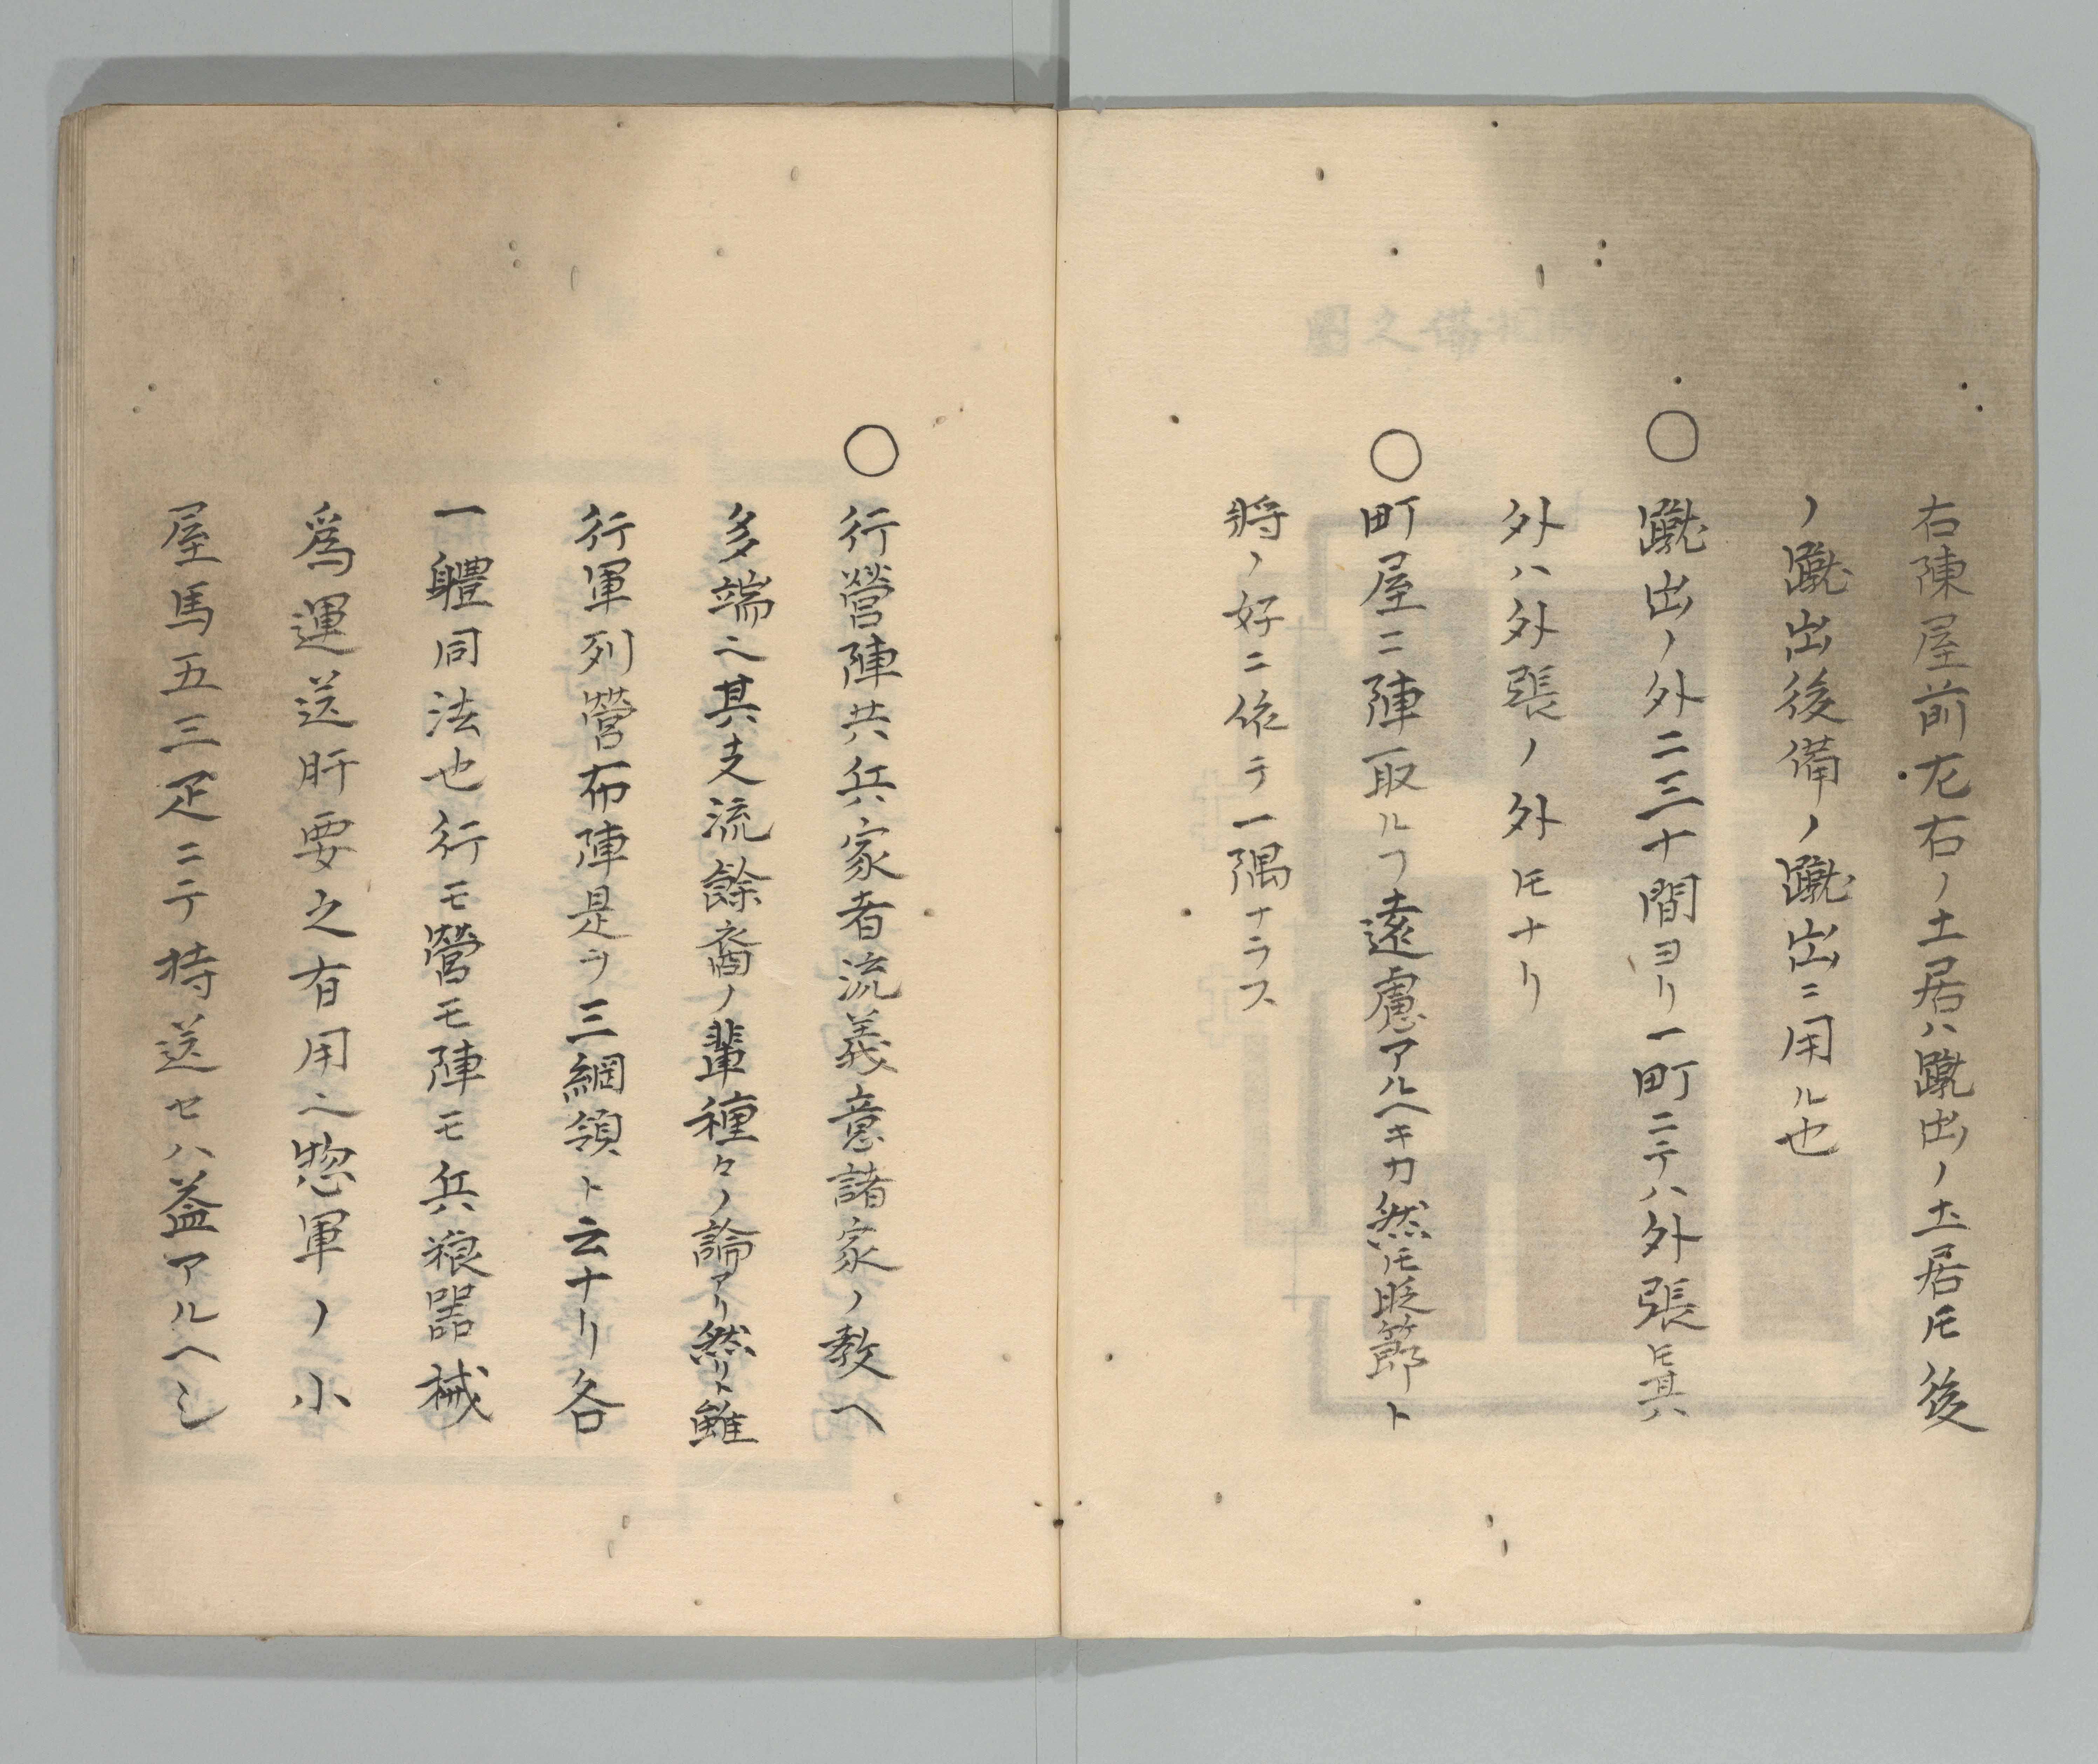 右陳屋前左右ノ土居ハ蹴出ノ土居𪜈後
ノ蹴出後備ノ蹴出ニ用ル也
○蹴出ノ外二三十間ヨリ一町ニテハ外張𪜈其ハ
外ハ外張ノ外𪜈ナリ
○町屋ニ陣取ルヿ遠慮アルヘキカ然𪜈時節ト
將ノ好ニ依テ一隅ナラス
○行營陣共兵家者流義意諸家ノ教ヘ
多端ニ〆其支流餘裔ノ輩種々ノ論アリ然リト雖
行軍列營布陣是ヲ三綱領ト云ナリ各
一軆同法也行モ營モ陣モ兵粮器械
爲運送肝要之有用ニ〆惣軍ノ小
屋馬五三疋ニテ持送セハ益アルヘシ